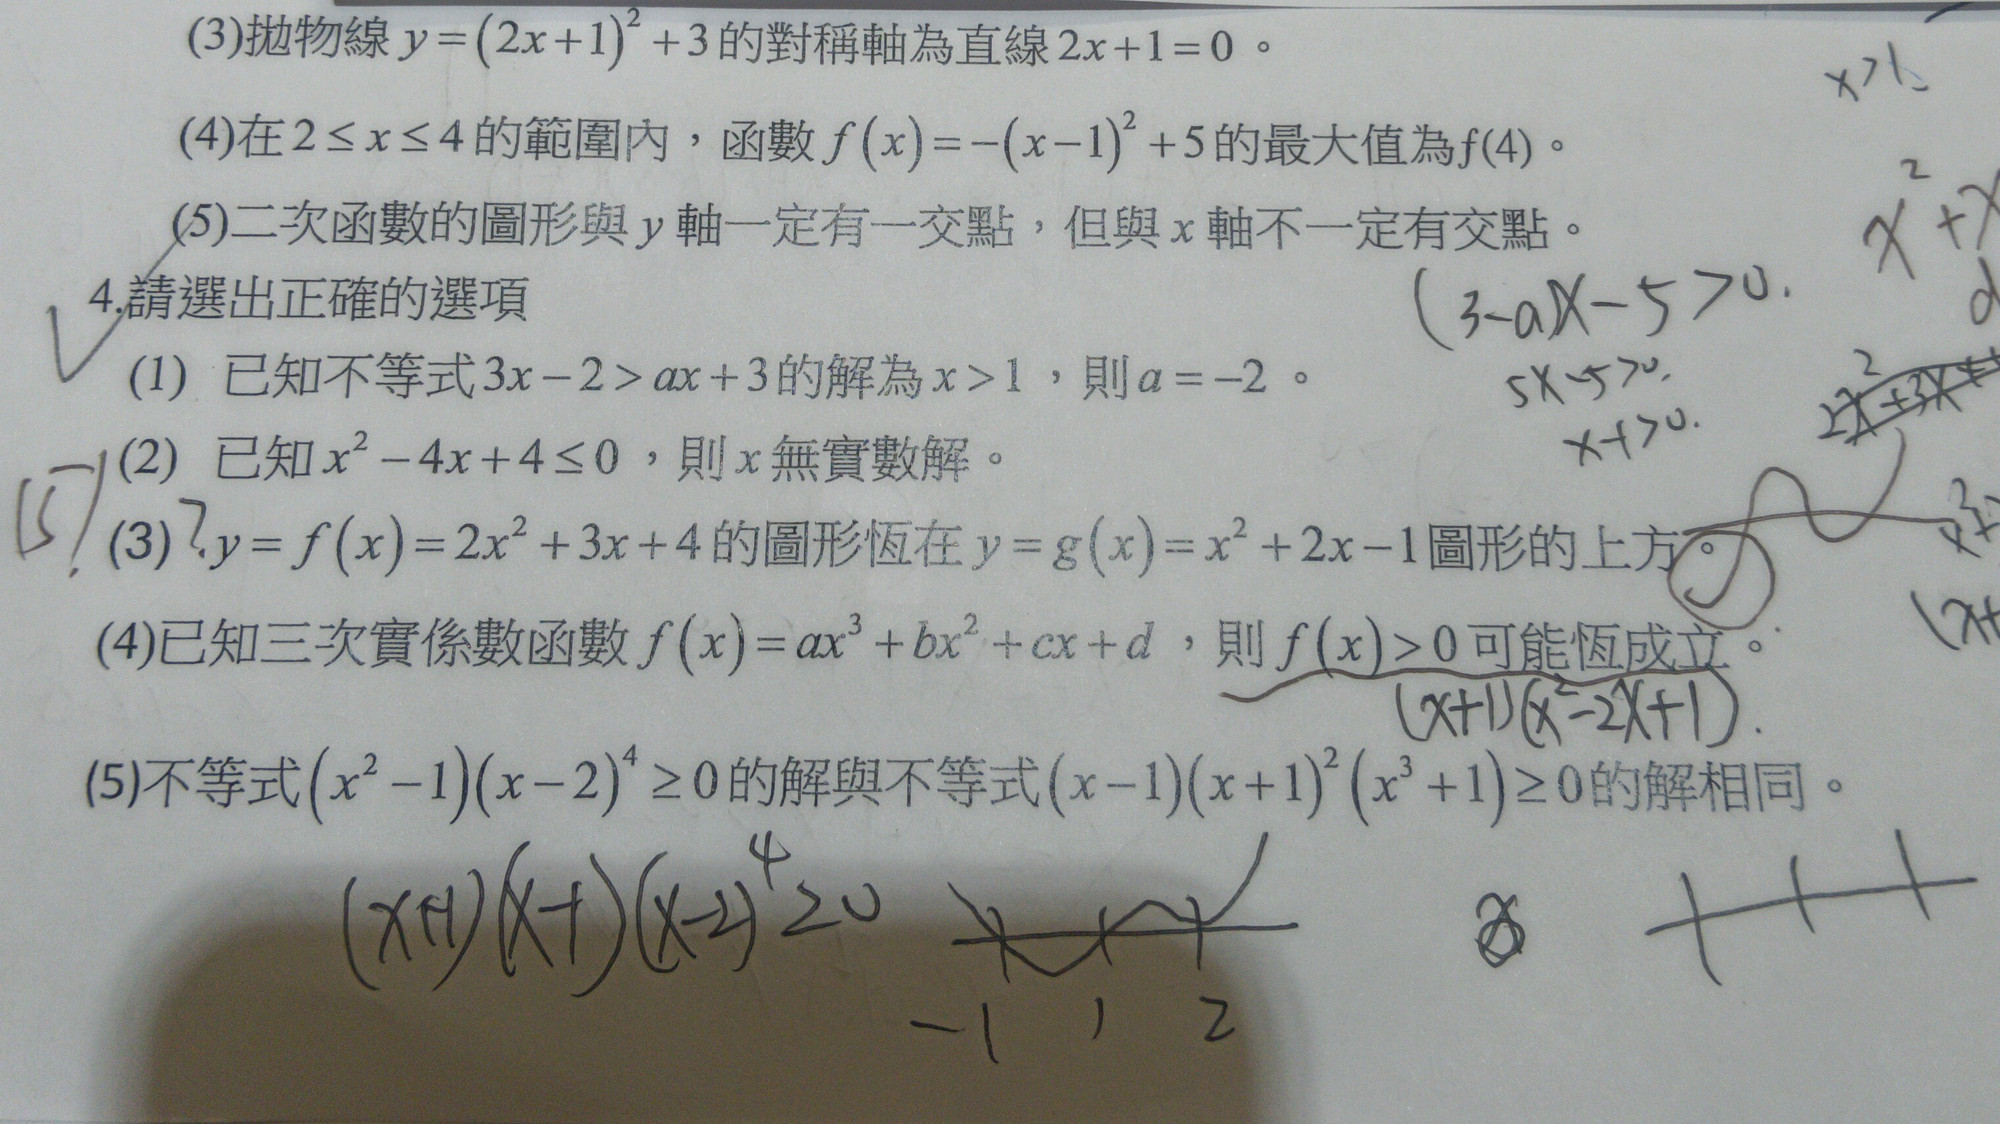 (3)拋物線 y=(2x+1)²+3的對稱軸為直線2x+1=0。
x>1
(4)在2≤x≤4的範圍內，函數 f(x)=-(x-1)²+5的最大值為f(4)。
x²+x
(5)二次函數的圖形與 y 軸一定有一交點，但與 x 軸不一定有交點。
4.請選出正確的選項
(3-a)x-5>0.
(1) 已知不等式3x-2>ax+3的解為 x>1，則a=-2。
5x-5>0.
2x²+3x+
(2) 已知 x²-4x+4≤0，則 x 無實數解。
x-1>0.
(3)?y=f(x)=2x²+3x+4的圖形恆在 y=g(x)=x²+2x-1圖形的上方。
(4)已知三次實係數函數 f(x)=ax³+bx²+cx+d，則 f(x)>0可能恆成立。
(x+1)(x²-2x+1).
(5)不等式(x²-1)(x-2)⁴≥0的解與不等式(x-1)(x+1)²(x³+1)≥0的解相同。
(x+1)(x-1)(x-2)⁴≥0
-1 1 2